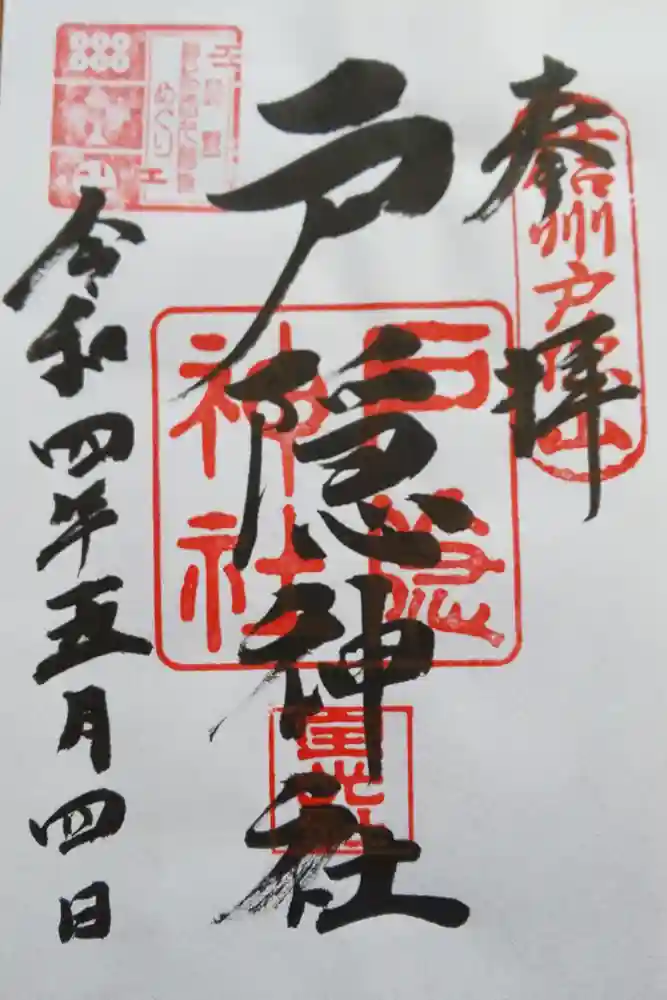 奉拝
信州戸隠山
戸隠神社
戸隠
神社
令和四年五月四日
めぐり